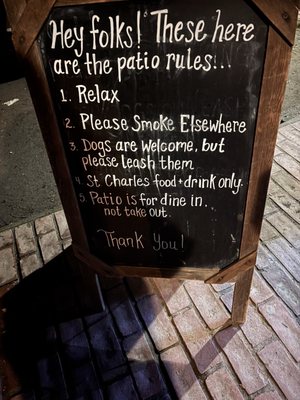 Hey folks! These here
are the patio rules...
1. Relax
2. Please Smoke Elsewhere
3. Dogs are welcome, but
please leash them
4. St. Charles food + drink only.
5. Patio is for dine in,
not take out.
Thank You!